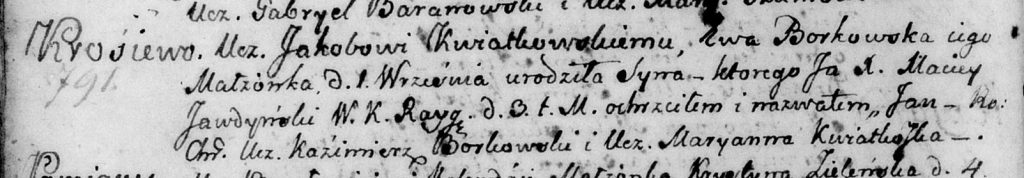 Ucz. Gabryel Baranowski i Ucz.
Krosiewo. Ucz. Jakobowi Kwiatkowskiemu, Ewa Borkowska iego
791. Małżonka, d. 1. Września urodziła Syna – ktorego Ja X. Maciey
Jawdyński W. K. Rayg. d. 3. t. M. ochrzciłem i nazwałem „Jan – Ro:
Chrz. Ucz. Kaźimierz Borkowski i Ucz. Maryanna Kwiatkoska –.
Małżonka Krystyna Zieleńska d. 4.